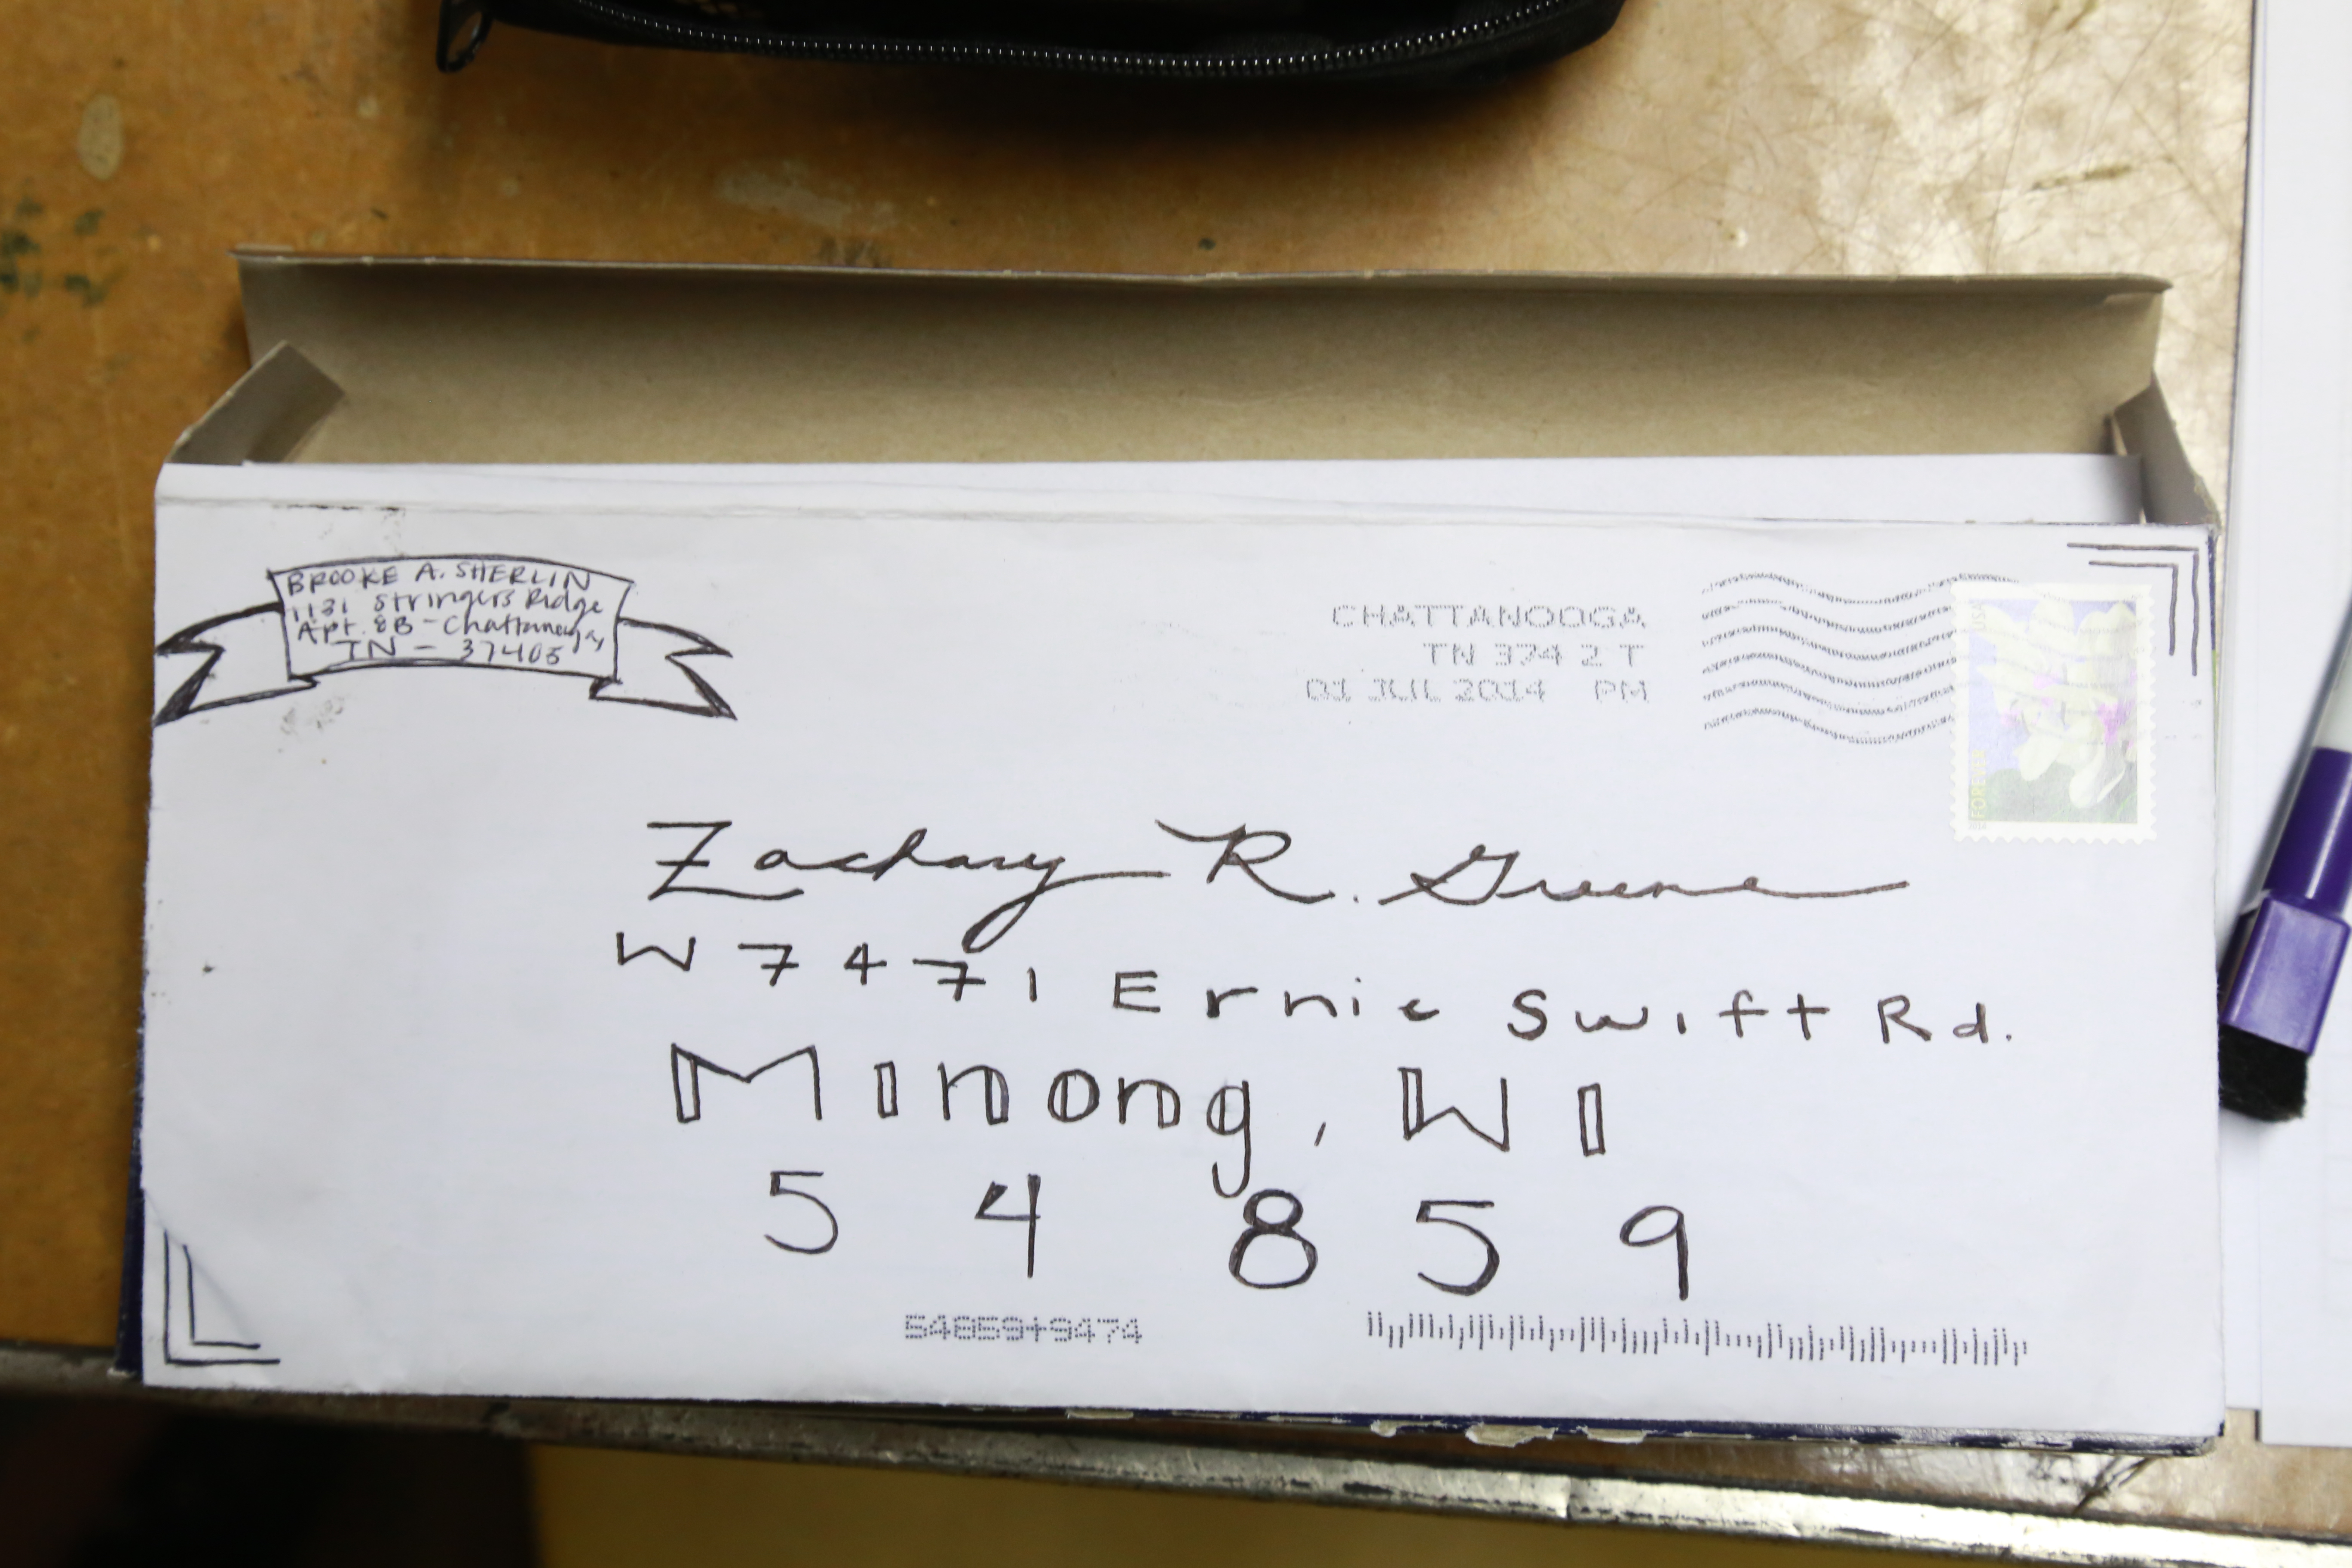 BROOKE A. SHERLIN
1131 Stringers Ridge
Apt. 8B - Chattanooga,
TN - 37405
CHATTANOOGA
TN 374 2 T
01 JUL 2014 PM
USA
FOREVER
2014
Zachary R. Greene
W7471 Ernie Swift Rd.
Minong, WI
54859
54859+9474